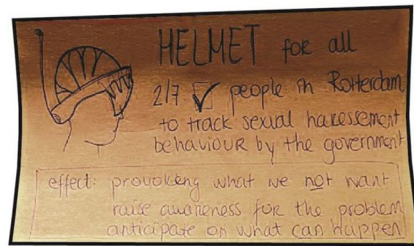 HELMET for all
2/7 ✓ people in Rotterdam
to track sexual haressement
behaviour by the government
effect: provokeng what we not want
raise awareness for the problem
anticipate on what can happen